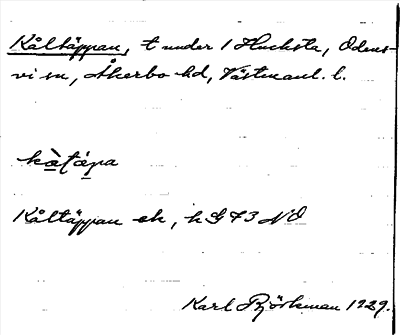 Kåltäppan, t under 1 Hucksta, Odens-
vi sn, Åkerbo hd, Västmanl. l.
kàtápa
Kåltäppan ek, h G 73 NO
Karl Björkman 1929.